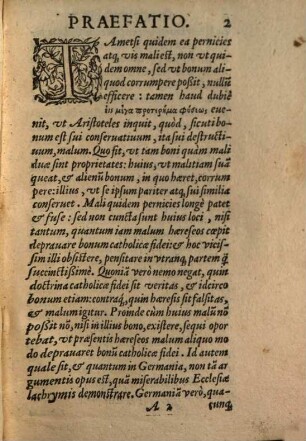 PRAEFATIO. 2
TAmetsi quidem ea pernicies
atq; vis mali est, non vt qui-
dem omne, sed vt bonum ali-
quod corrumpere possit, nullū
efficere: tamen haud dubiè
eue-
nit, vt Aristoteles inquit, quòd, sicuti bo-
num est sui conseruatiuum, ita sui destructi-
uum, malum. Quo fit, vt tam boni quàm mali
duæ sint proprietates: huius, vt malitiam suā
queat, & alienū bonum, in quo hæret, corrum
pere: illius, vt se ipsum pariter atq; sui similia
conseruet. Mali quidem pernicies longè patet
& fuse: sed non cuncta sunt huius loci, nisi
tantum, quantum iam malum hæreseos cœpit
deprauare bonum catholicæ fidei: & hoc vicis-
sim illi obsistere, pensitare in vtranq; partem q̃
succinctissimè. Quoniā verò nemo negat, quin
doctrina catholicæ fidei sit veritas, & idcirco
bonum etiam: contraq́; quin hæresis sit falsitas,
& malum igitur. Promde cùm huius malū nō
possit nō, nisi in illius bono, existere, sequi opor
tebat, vt præsentis hæreseos malum aliquo mo
do deprauaret bonū catholicæ fidei. Id autem
quale sit, & quantum in Germania, non tā ar
gumentis opus est, quā miserabilibus Ecclesiæ
lachrymis demonstrare. Germaniā verò, qua-
A 2 cunq;